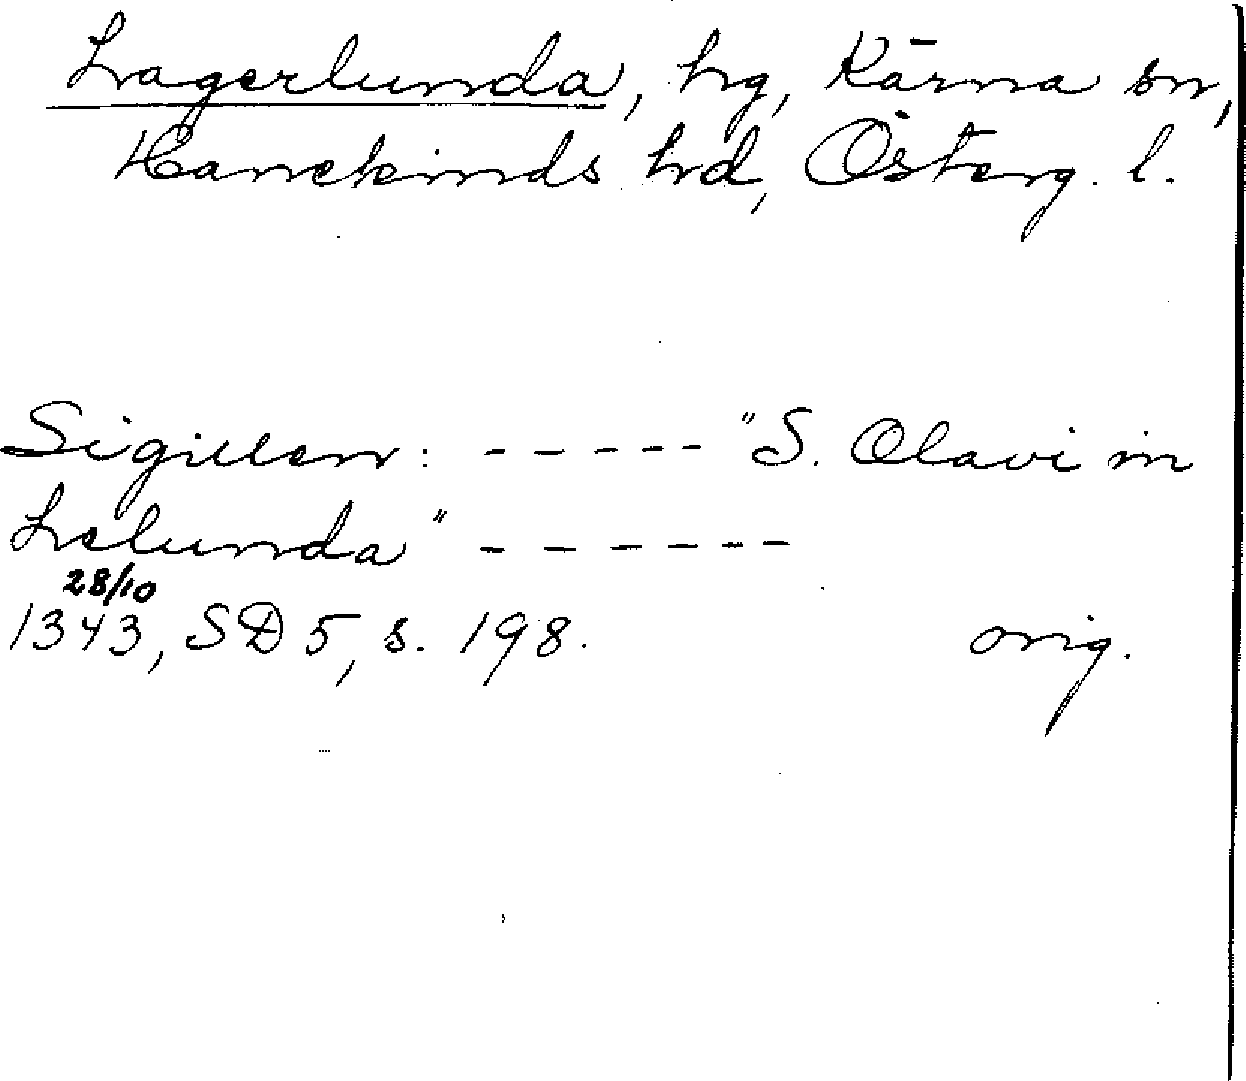 Lagerlunda, hg, Kärna sn,
Hanekinds hd, Österg. l.
Sigillen: ----- "S. Olavi in
Lelunda" ------
28/10
1343, SD 5, s. 198. orig.